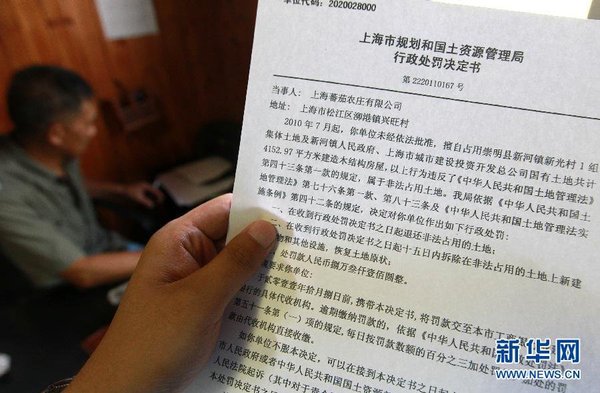 单位代码：2020028000
上海市规划和国土资源管理局
行政处罚决定书
第 2220110167 号
当事人：上海蕃茄农庄有限公司
地址：上海市松江区泖港镇兴旺村
2010 年 7 月起，你单位未经依法批准，擅自占用崇明县新河镇新光村 1 组
集体土地及新河镇人民政府、上海市城市建设投资开发总公司国有土地共计
4152.97 平方米建造木结构房屋，以上行为违反了《中华人民共和国土地管理法》
第四十三条第一款的规定，属于非法占用土地。我局依据《中华人民共和国土
地管理法》第七十六条第一款、第八十三条及《中华人民共和国土地管理法实
施条例》第四十二条的规定，决定对你单位作出如下行政处罚：
一、在收到行政处罚决定书之日起退还非法占用的土地；
二、在收到行政处罚决定书之日起十五日内拆除在非法占用的土地上新建
物和其他设施，恢复土地原状；
处罚款人民币捌万叁仟壹佰圆整。
要求你单位：
于贰零壹壹年拾月捌日前，携带本决定书，将罚款交至本市工商
是行的具体代收机构。逾期缴纳罚款的，依据《中华人民共和国行政处罚法》
第五十一条第（一）项的规定，每日按罚款数额的百分之三加处罚款，加处的罚
款由代收机构直接收缴。
如你单位不服本决定，可以在接到本决定书之日起
市人民政府或者中华人民共和国国土资源
人民法院起诉（其中对于责令
本处罚决定书之日起
新华网
WWW.NEWS.CN